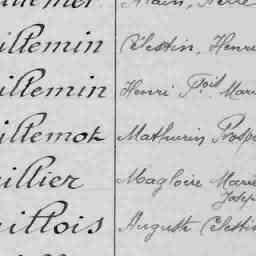 illemin Célestin, Henri
illemin Henri Fçois Mari
illemot Mathurin Prosp
illier Magloire Marie
Josep
illois Auguste Célestin